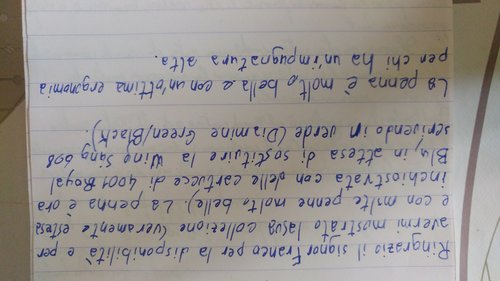 Ringrazio il signor Franco per la disponibilità e per
avermi mostrato la sua collezione (veramente estesa
e con molte penne molto belle). La penna è ora
inchiostrata con delle cartucce di 4001 Royal
Blu, in attesa di sostituire la Wing Sang 698
scrivendo in verde (Diamine Green/Black).
La penna è molto bella e con un'ottima ergonomia
per chi ha un'impugnatura alta.